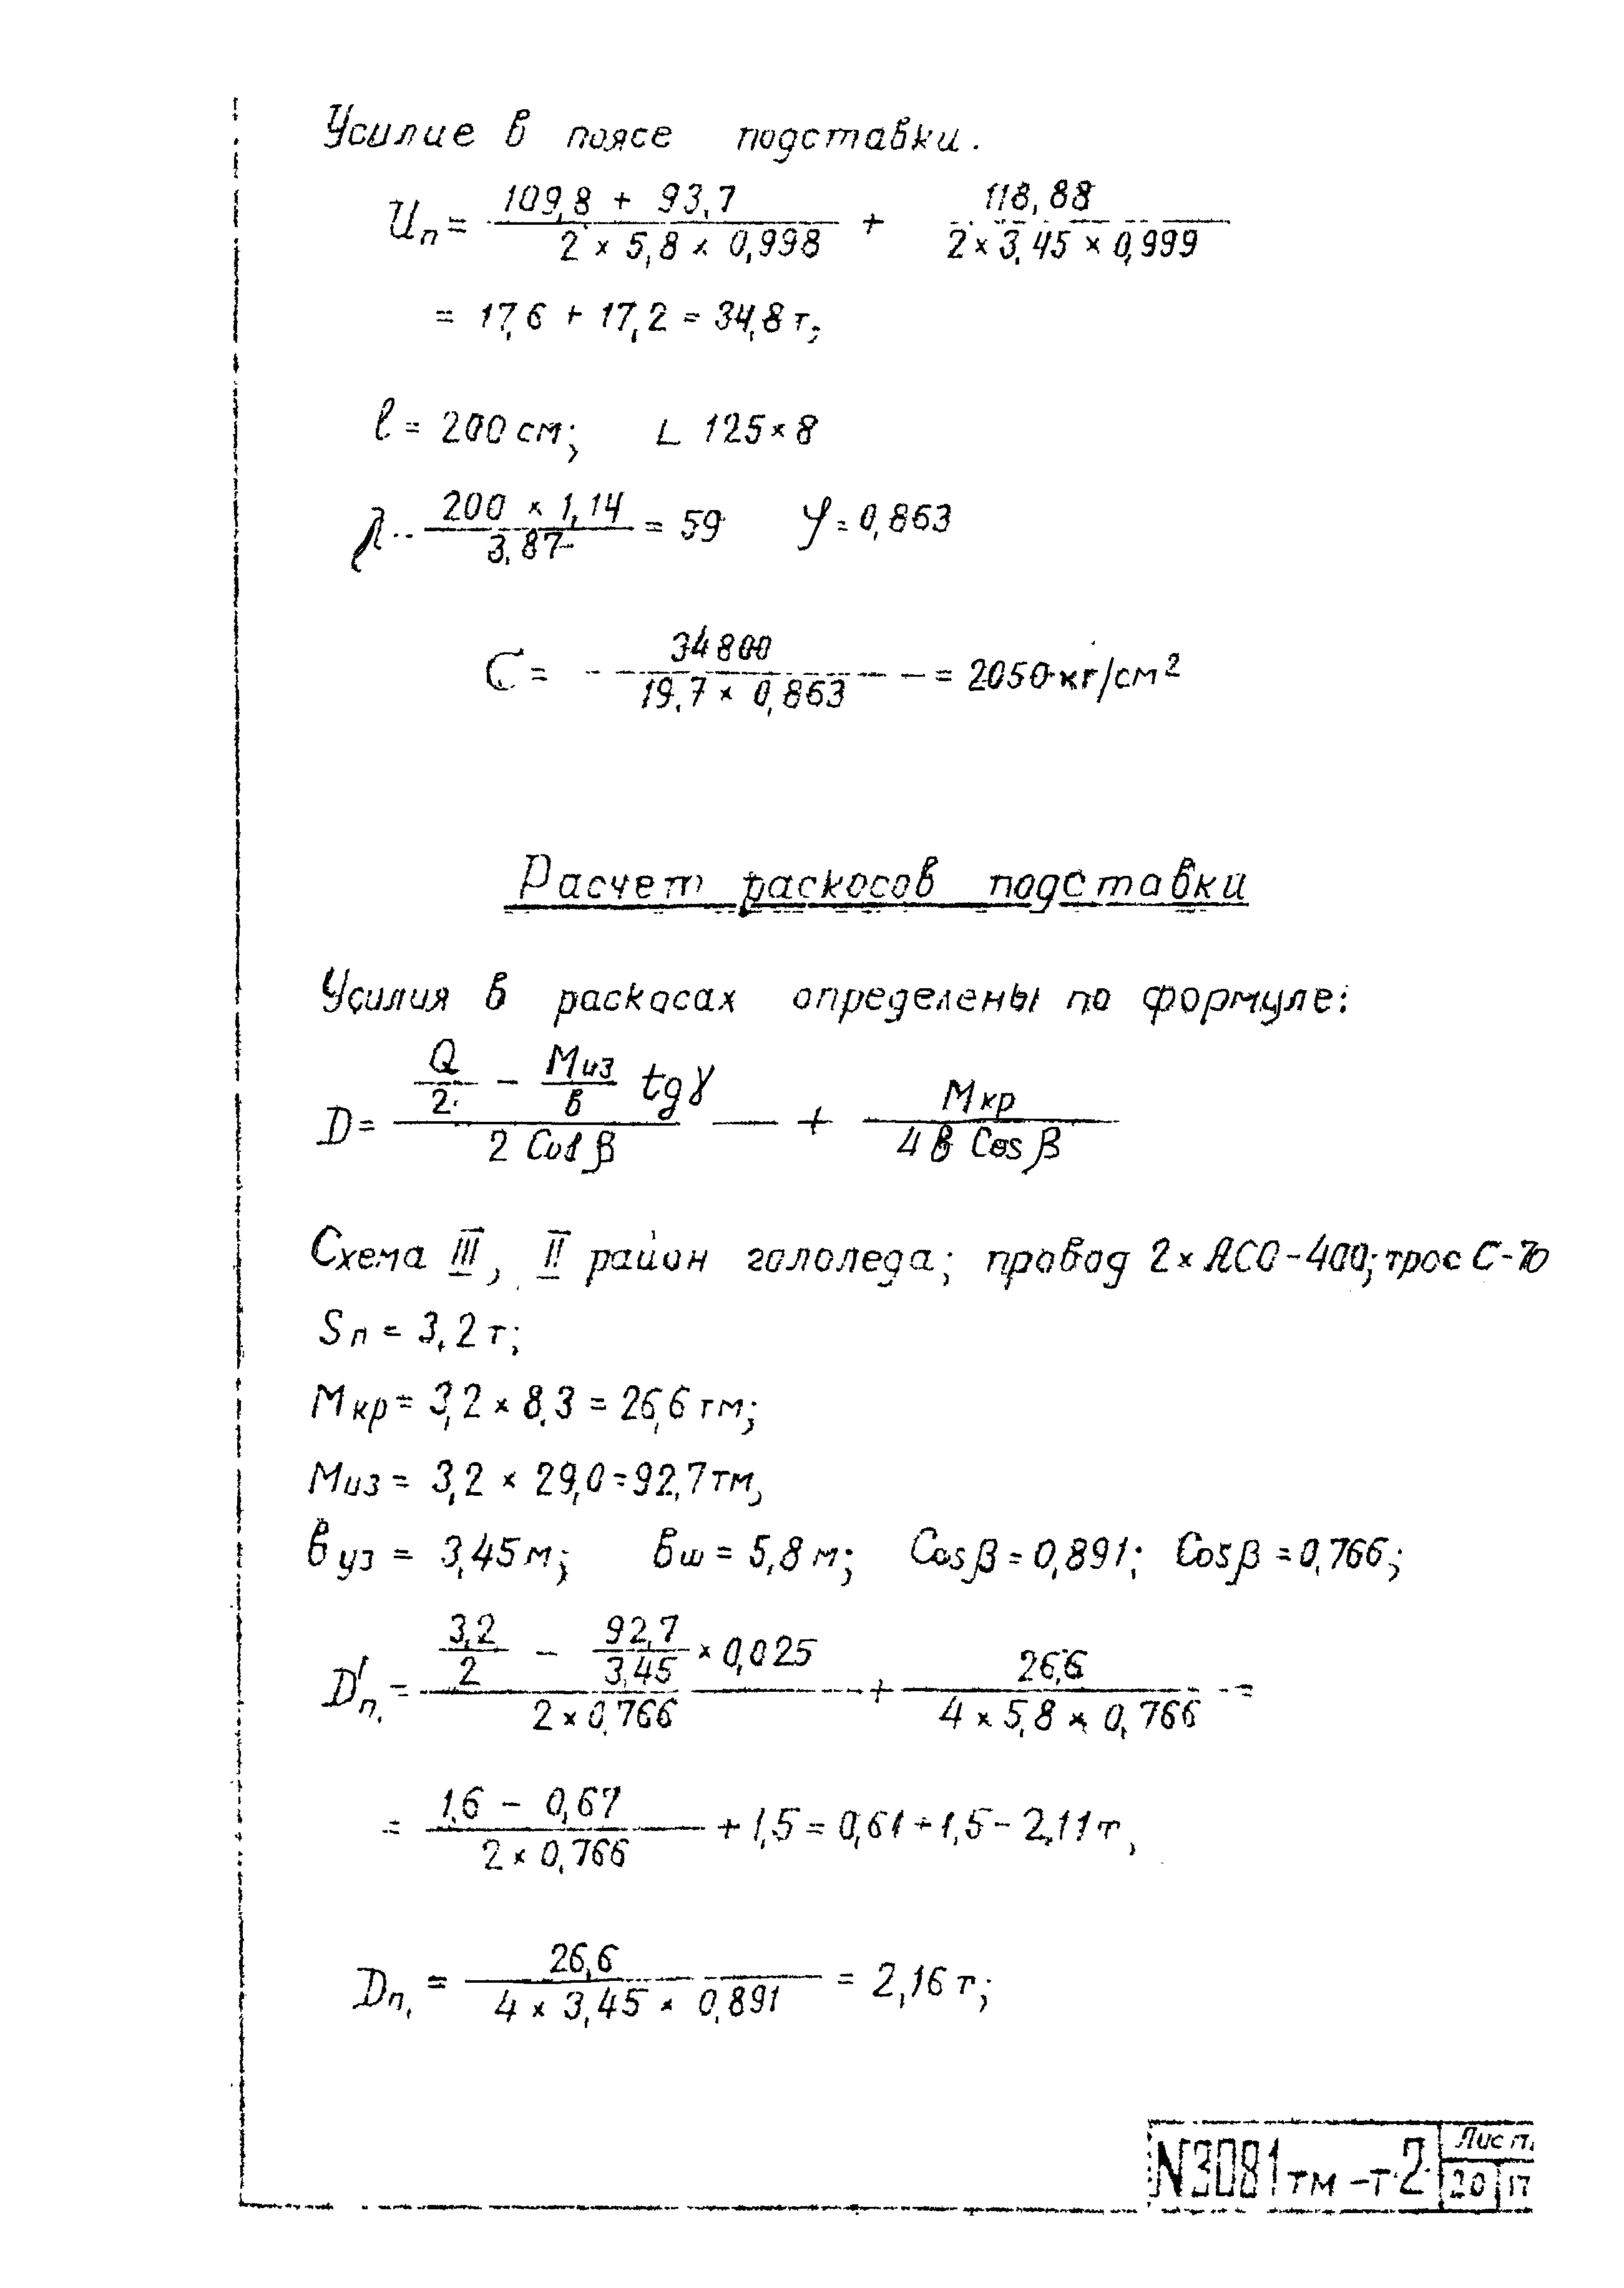 Усилие в поясе подставки.
Uп = (109,8 + 93,7) / (2 × 5,8 × 0,998) + 118,88 / (2 × 3,45 × 0,999)
= 17,6 + 17,2 = 34,8 т;
ℓ = 200 см; ∟ 125×8
λ = (200 × 1,14) / 3,87 = 59 φ = 0,863
σ = 34800 / (19,7 × 0,863) = 2050 кг/см²
Расчет раскосов подставки
Усилия в раскосах определены по формуле:
D = (Q/2 − Mиз/в tgγ) / (2 Cosβ) + Mкр / (4в Cosβ)
Схема III, II район гололеда; провод 2×АСО-400; трос С-70
Sп = 3,2 т;
Mкр = 3,2 × 8,3 = 26,6 тм;
Mиз = 3,2 × 29,0 = 92,7 тм,
вуз = 3,45 м; вш = 5,8 м; Cosβ = 0,891; Cosβ = 0,766;
D'п. = (3,2/2 − 92,7/3,45 × 0,025) / (2 × 0,766) + 26,6 / (4 × 5,8 × 0,766) =
= (1,6 − 0,67) / (2 × 0,766) + 1,5 = 0,61 + 1,5 − 2,11 т,
Dп. = 26,6 / (4 × 3,45 × 0,891) = 2,16 т;
N3081тм-т2 Лист.
20 17